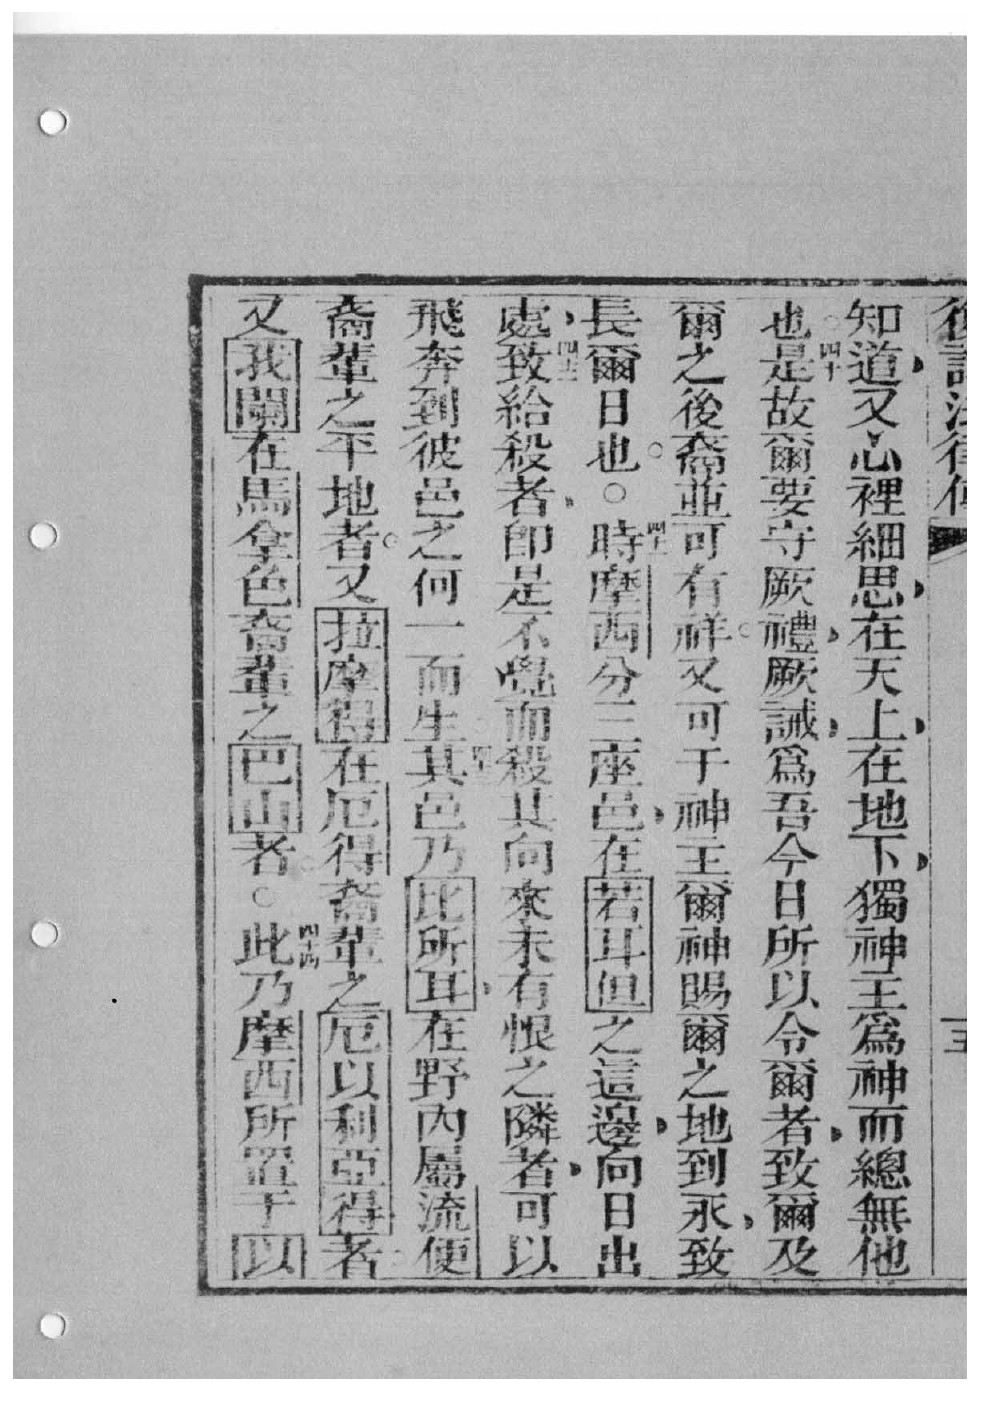 復詁法律傳
知道又心裡細思在天上在地下獨神王為神而總無他
也四十是故爾要守厥禮厥誡為吾今日所以令爾者致爾及
爾之後裔並可有祥又可于神王爾神賜爾之地到永致
長爾日也○四一時摩西分三座邑在若耳但之這邊向日出
處四二致給殺者即是不覺而殺其向來未有恨之隣者可以
飛奔到彼邑之何一而生四三其邑乃比所耳在野內屬流便
裔輩之平地者又拉摩得在厄得裔輩之厄以利亞得者
又我闌在馬拿色裔輩之巴山者○四十四此乃摩西所置于以